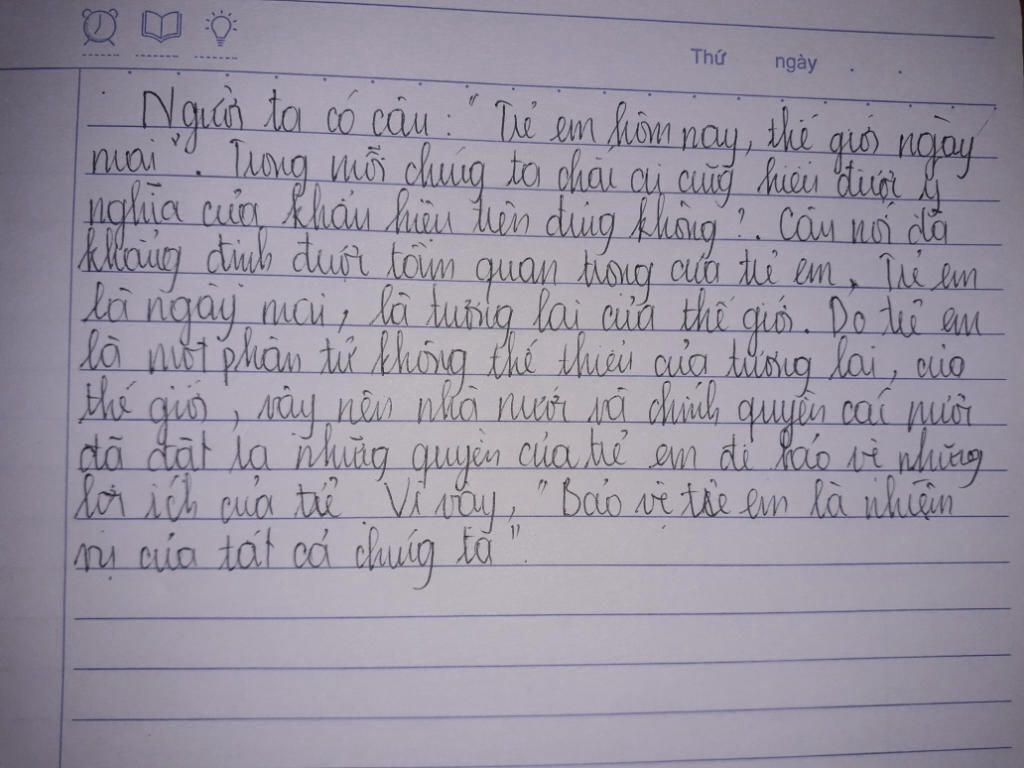 Thứ ngày
Người ta có câu: "Trẻ em hôm nay, thế giới ngày
mai". Trong mỗi chúng ta chắc ai cũng hiểu được ý
nghĩa của khẩu hiệu trên đúng không?. Câu nói đã
khẳng định được tầm quan trọng của trẻ em. Trẻ em
là ngày mai, là tương lai của thế giới. Do trẻ em
là một phần tử không thể thiếu của tương lai, của
thế giới, vậy nên nhà nước và chính quyền các nước
đã đặt ra những quyền của trẻ em để bảo vệ những
lợi ích của trẻ Vì vậy, "Bảo vệ trẻ em là nhiệm
vụ của tất cả chúng ta".